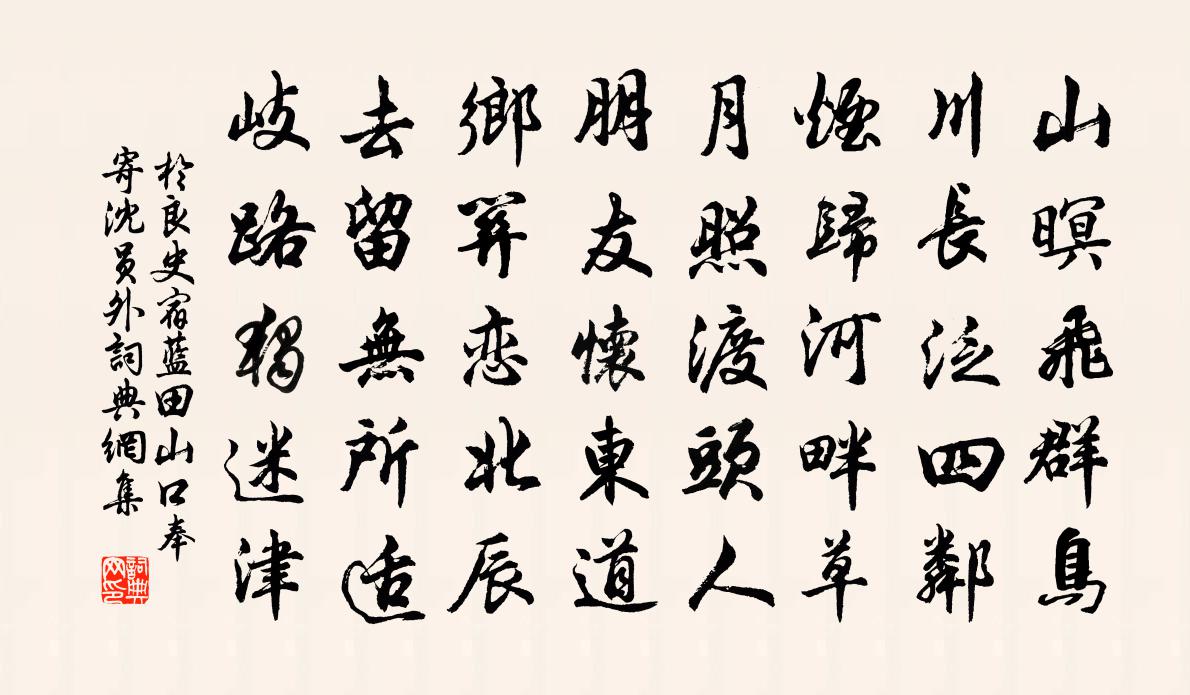 山暝飛群鳥
川長泛四鄰
煙歸河畔草
月照渡頭人
朋友懷東道
鄉関恋北辰
去留無所适
岐路獨迷津
於良史宿藍田山口奉
寄沈員外詞典網集
詞典
网印